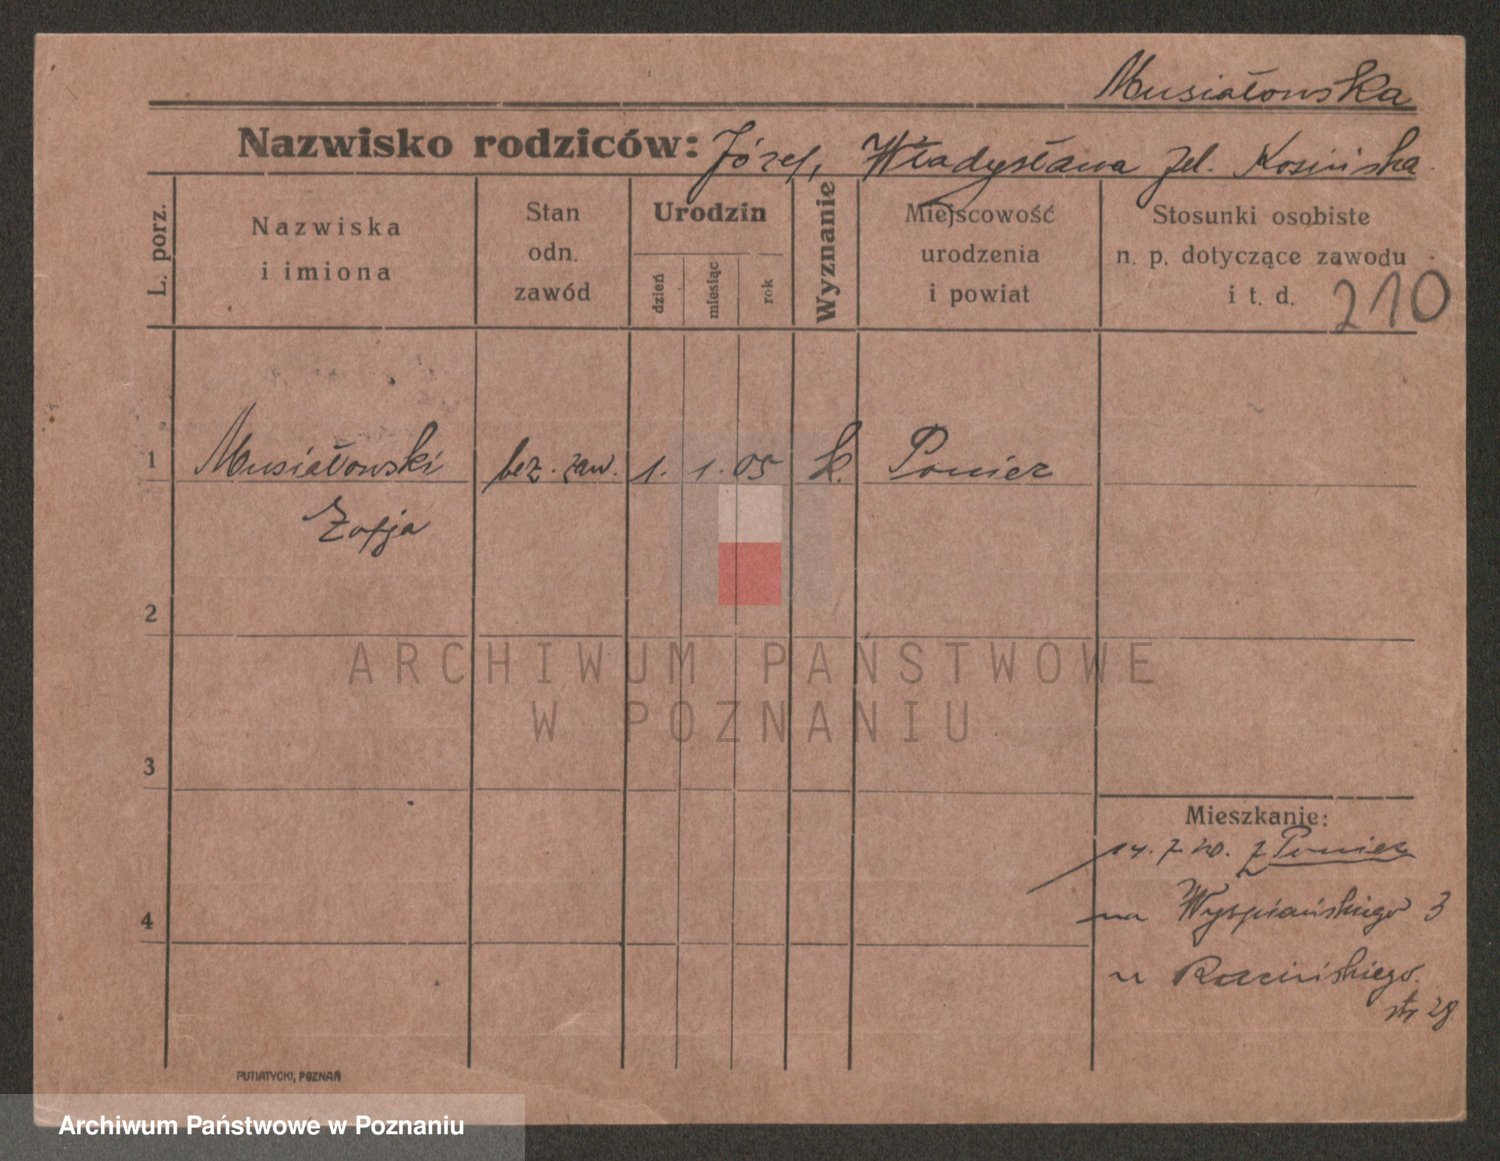 Musiałowska
Nazwisko rodziców: Józef, Władysława Kosińska
L. porz.
Nazwiska
i imiona
Stan
odn.
zawód
Urodzin
dzień
miesiąc
rok
Wyznanie
Miejscowość
urodzenia
i powiat
Stosunki osobiste
n. p. dotyczące zawodu
i t. d. 210
1 Musiałowski bez. zaw. 1. 1. 05 k. Poniec
Zofja
2
ARCHIWUM PAŃSTWOWE
W POZNANIU
3
Mieszkanie:
14. 7 20. z Poniec
na Wyspiańskiego 3
4
u
str 28.
PUTIATYCKI, POZNAŃ
Archiwum Państwowe w Poznaniu